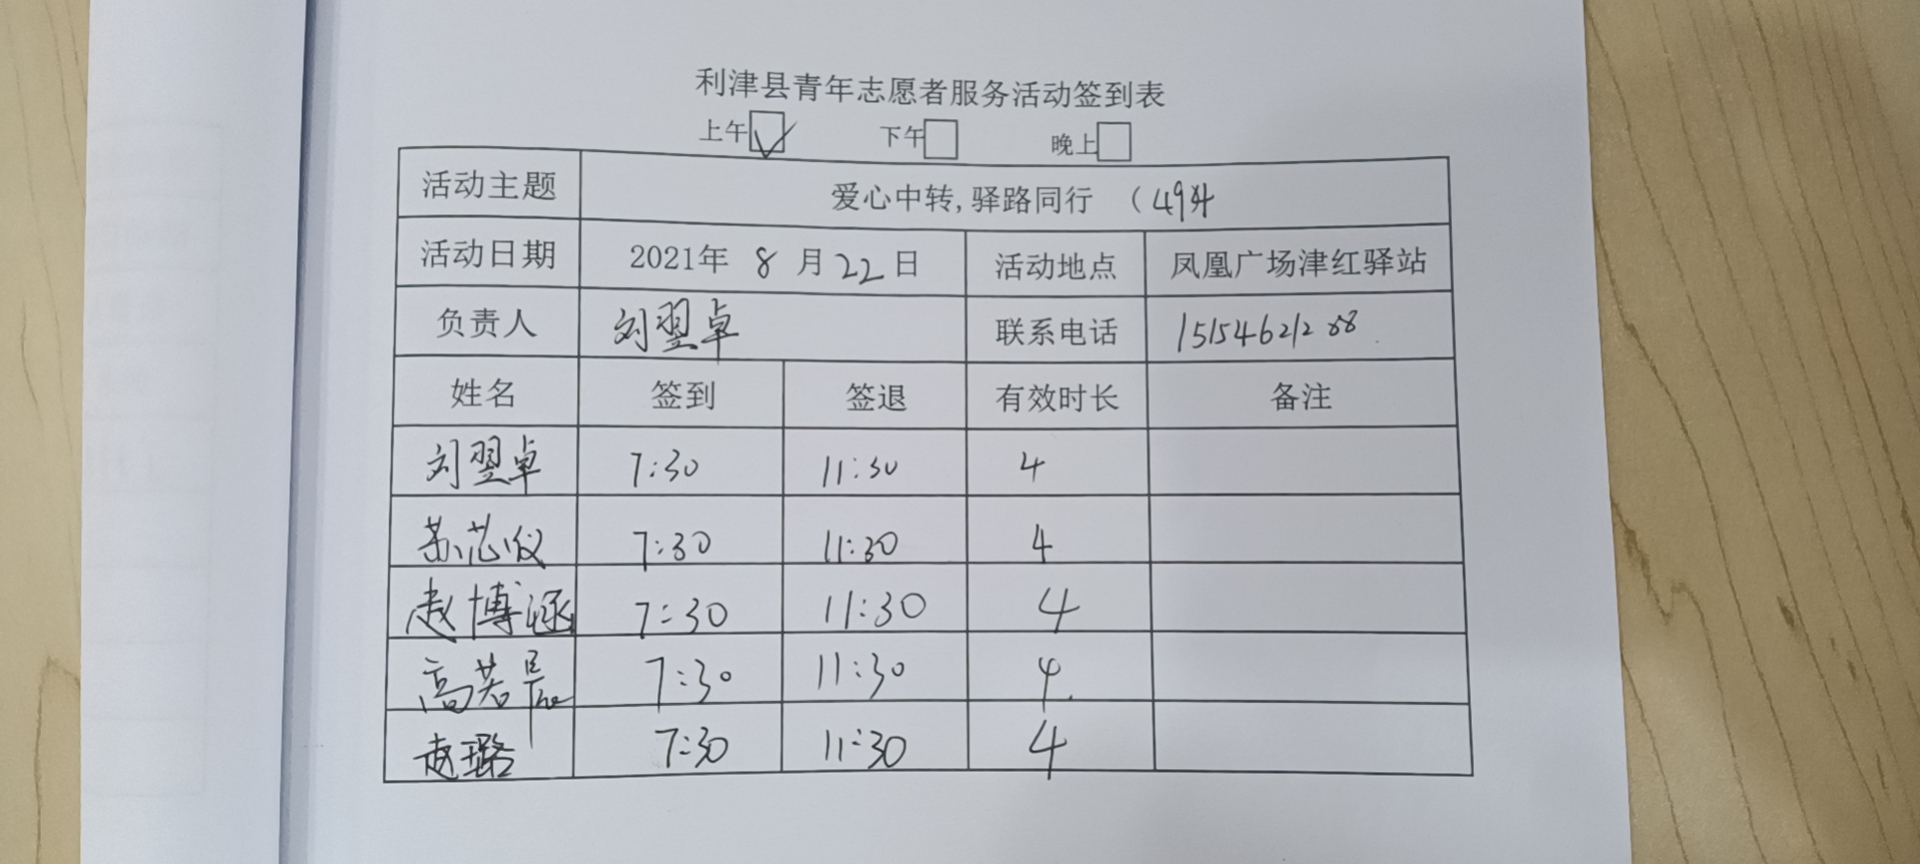 利津县青年志愿者服务活动签到表
上午☑ 下午□ 晚上□
活动主题 爱心中转,驿路同行 (49
活动日期 2021年 8 月 22 日 活动地点 凤凰广场津红驿站
负责人 刘翌卓 联系电话 15154621288
姓名 签到 签退 有效时长 备注
刘翌卓 7:30 11:30 4
苏芯仪 7:30 11:30 4
赵博涵 7:30 11:30 4
高若晨 7:30 11:30 4
赵璐 7:30 11:30 4